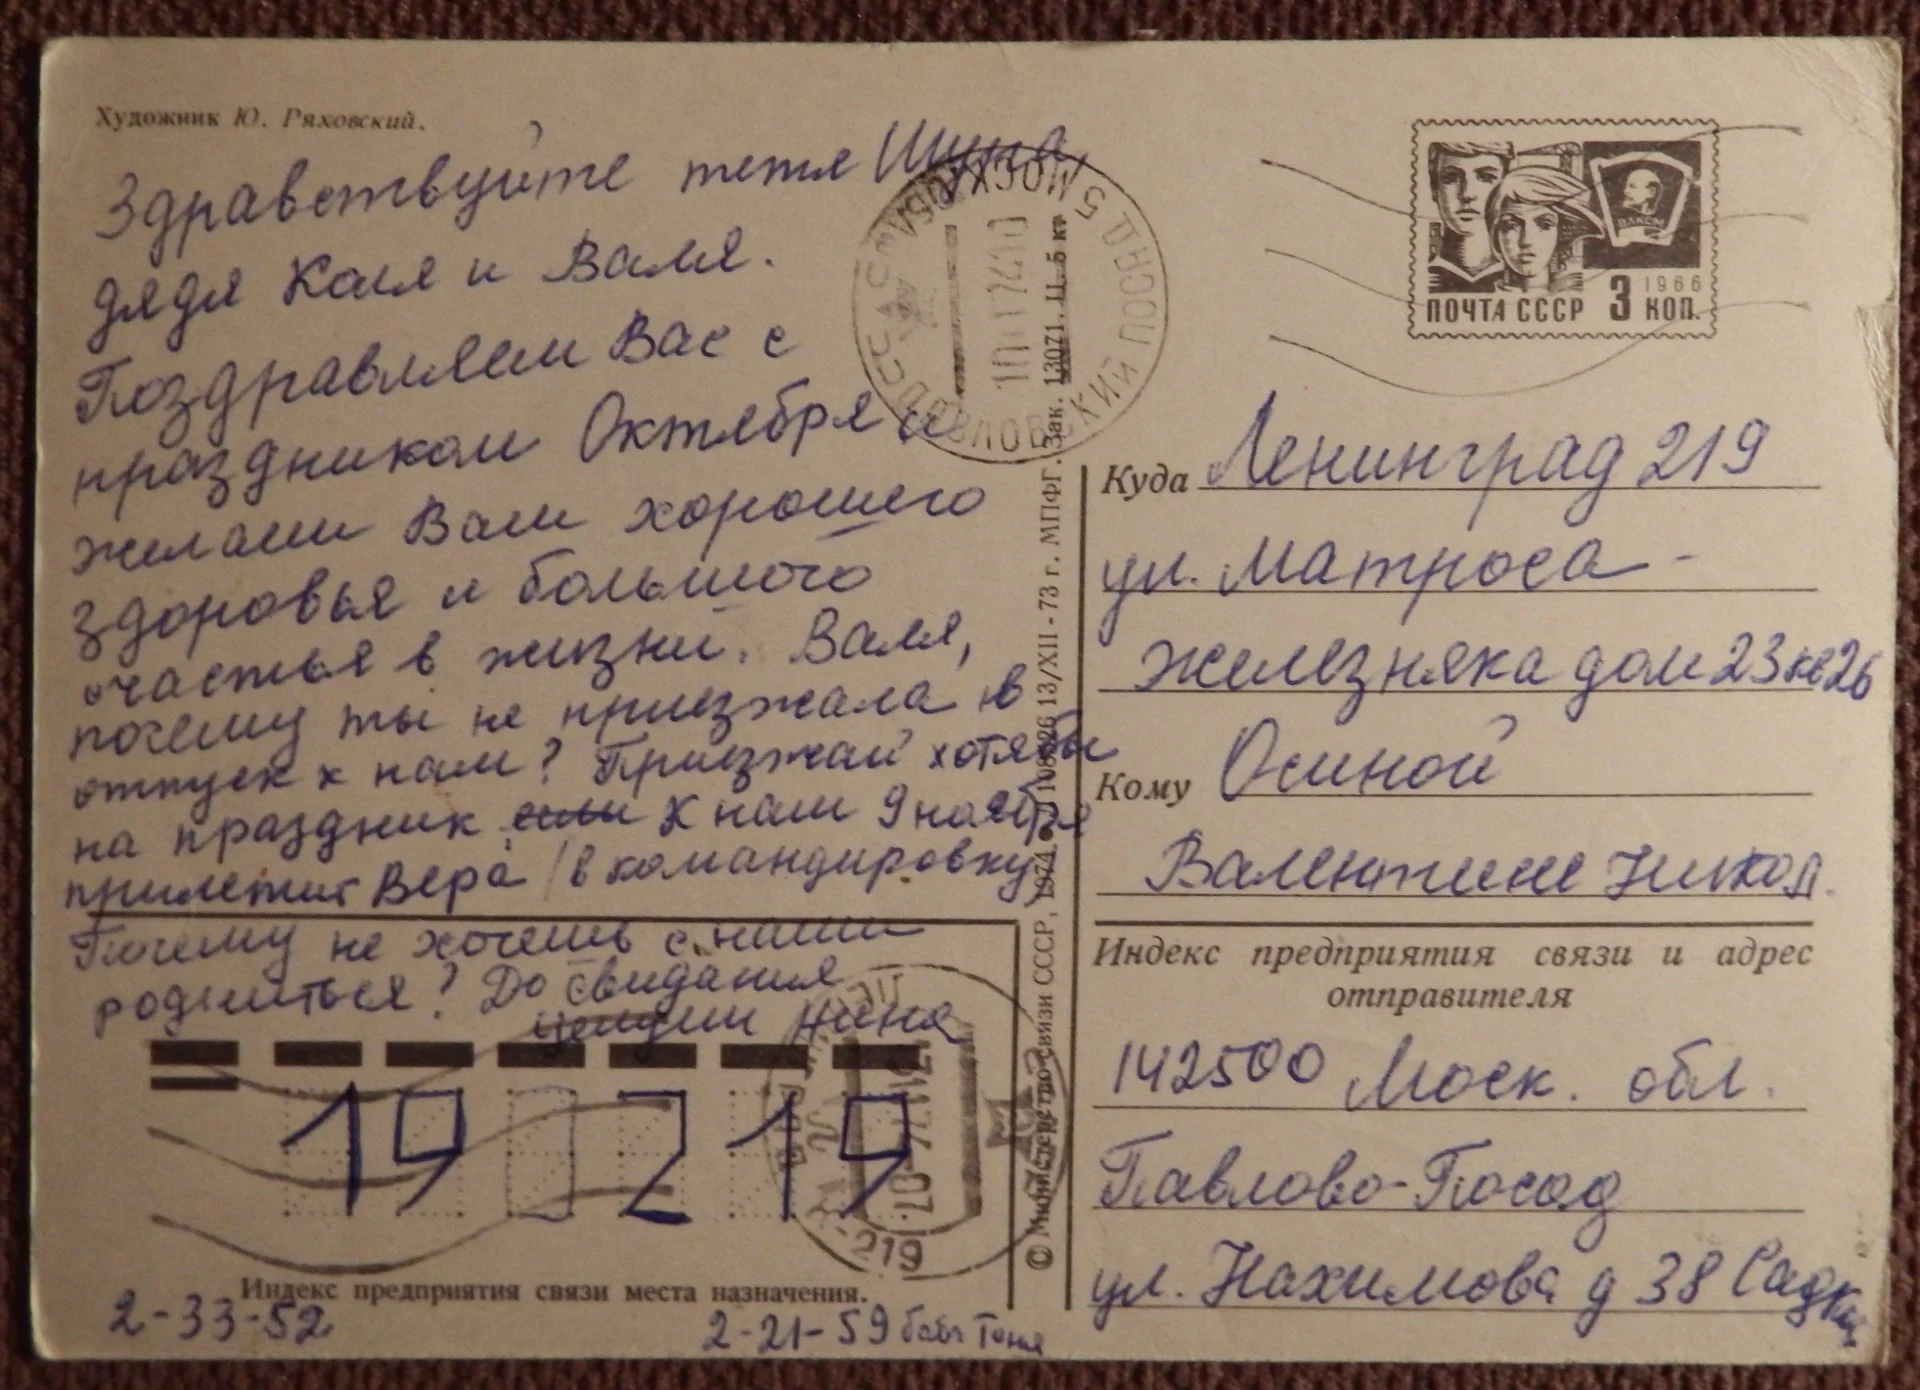 Художник Ю. Ряховский.
Здравствуйте тетя Шура,
дядя Коля и Валя.
Поздравляем Вас с
праздником Октября и
желаем Вам хорошего
здоровья и большого
счастья в жизни. Валя,
почему ты не приезжала в
отпуск к нам? Приезжай хотябы
на праздник К нам 9 ноября
прилетит Вера (в командировку)
Почему не хочешь с нами
родниться? До свидания
Нина
19 219
Индекс предприятия связи места назначения.
2-33-52
2-21-59 баба Тоня
© Министерство связи СССР, 1974. 13/XII-73 г. МПФГ. Зак. 13071. Ц. 5 к.
МОСК. ОБЛ.
ПАВЛОВСКИЙ ПОСАД 5
СССР
219
ВЛКСМ
1966
ПОЧТА СССР 3 КОП.
Куда Ленинград 219
ул. Матроса-
Железняка дом 23 кв 26
Кому Осиной
Валентине Никол.
Индекс предприятия связи и адрес
отправителя
142500 Моск. обл.
Павлово-Посад
ул. Нахимова д 38 Садки